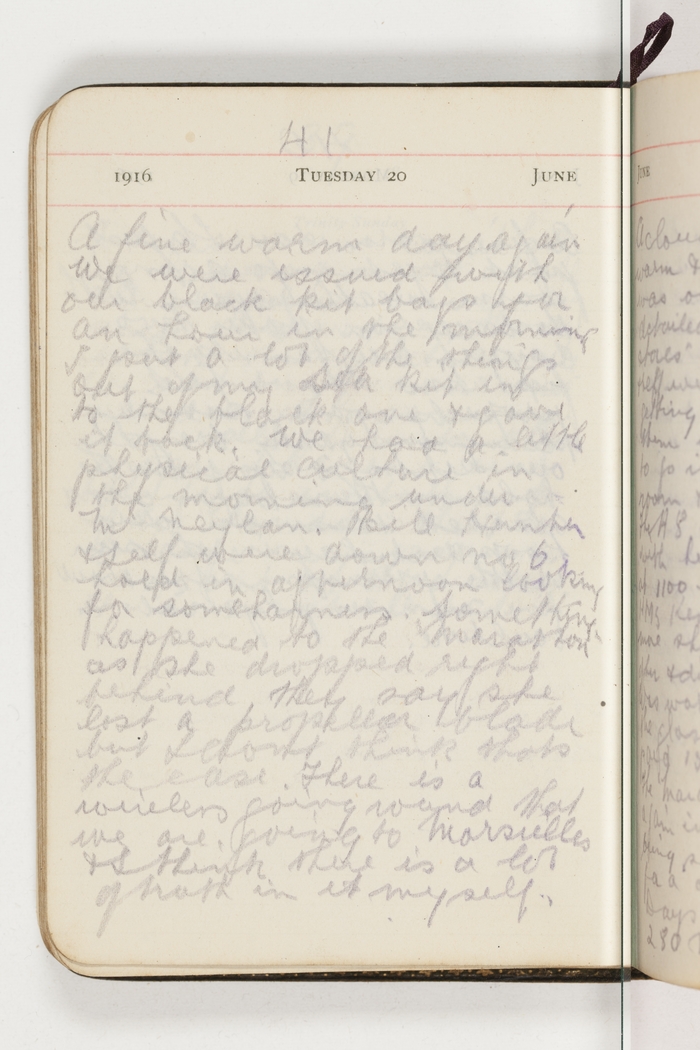 41
1916 TUESDAY 20 JUNE
A fine warm day again
We were issued with
our black kit bags for
an hour in the morning
I put a lot of the things
out of my sea kit in
to the black one & gave
it back. We had a little
physical culture in
the morning under
Mr Neylan. Bill Hunter
& self were down no 6
hold in afternoon looking
for some harness. Something
happened to the Marathon
as she dropped right
behind they say she
lost a propellor blade
but I dont think thats
the case. There is a
wireless going round that
we are going to Marseilles
& I think there is a lot
of truth in it myself.
JUNE
A clou
warm &
was o
detailed
self we
getting
them
to go i
warm
with he
of 1100
more sh
was wa
the
days
280